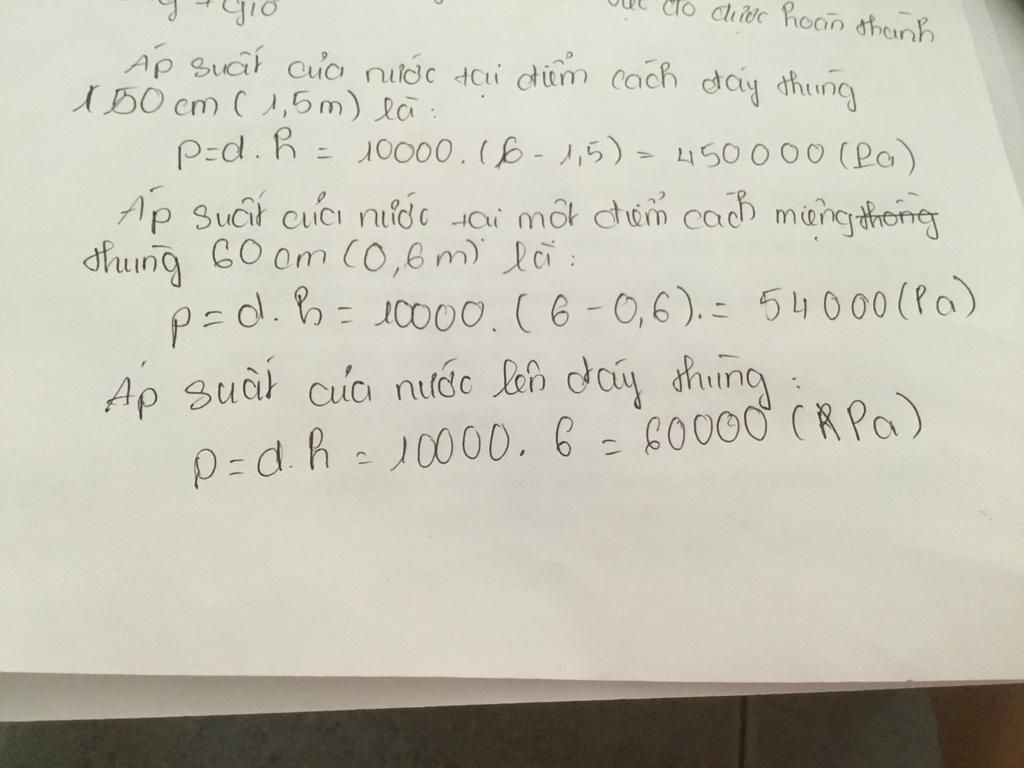 giờ
được hoàn thành
Áp suất của nước tại điểm cách đáy thùng
150cm (1,5m) là:
p=d.h = 10000.(6-1,5) = 450000(Pa)
Áp suất của nước tại một điểm cách miệng thùng
thùng 60cm (0,6m) là:
p=d.h=10000.(6-0,6).= 54000(Pa)
Áp suất của nước lên đáy thùng:
p=d.h = 10000.6 = 60000 (Pa)